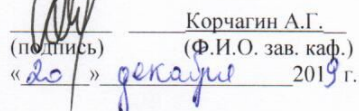 Корчагин А.Г.
(подпись) (Ф.И.О. зав. каф.)
«20» декабря 2019 г.